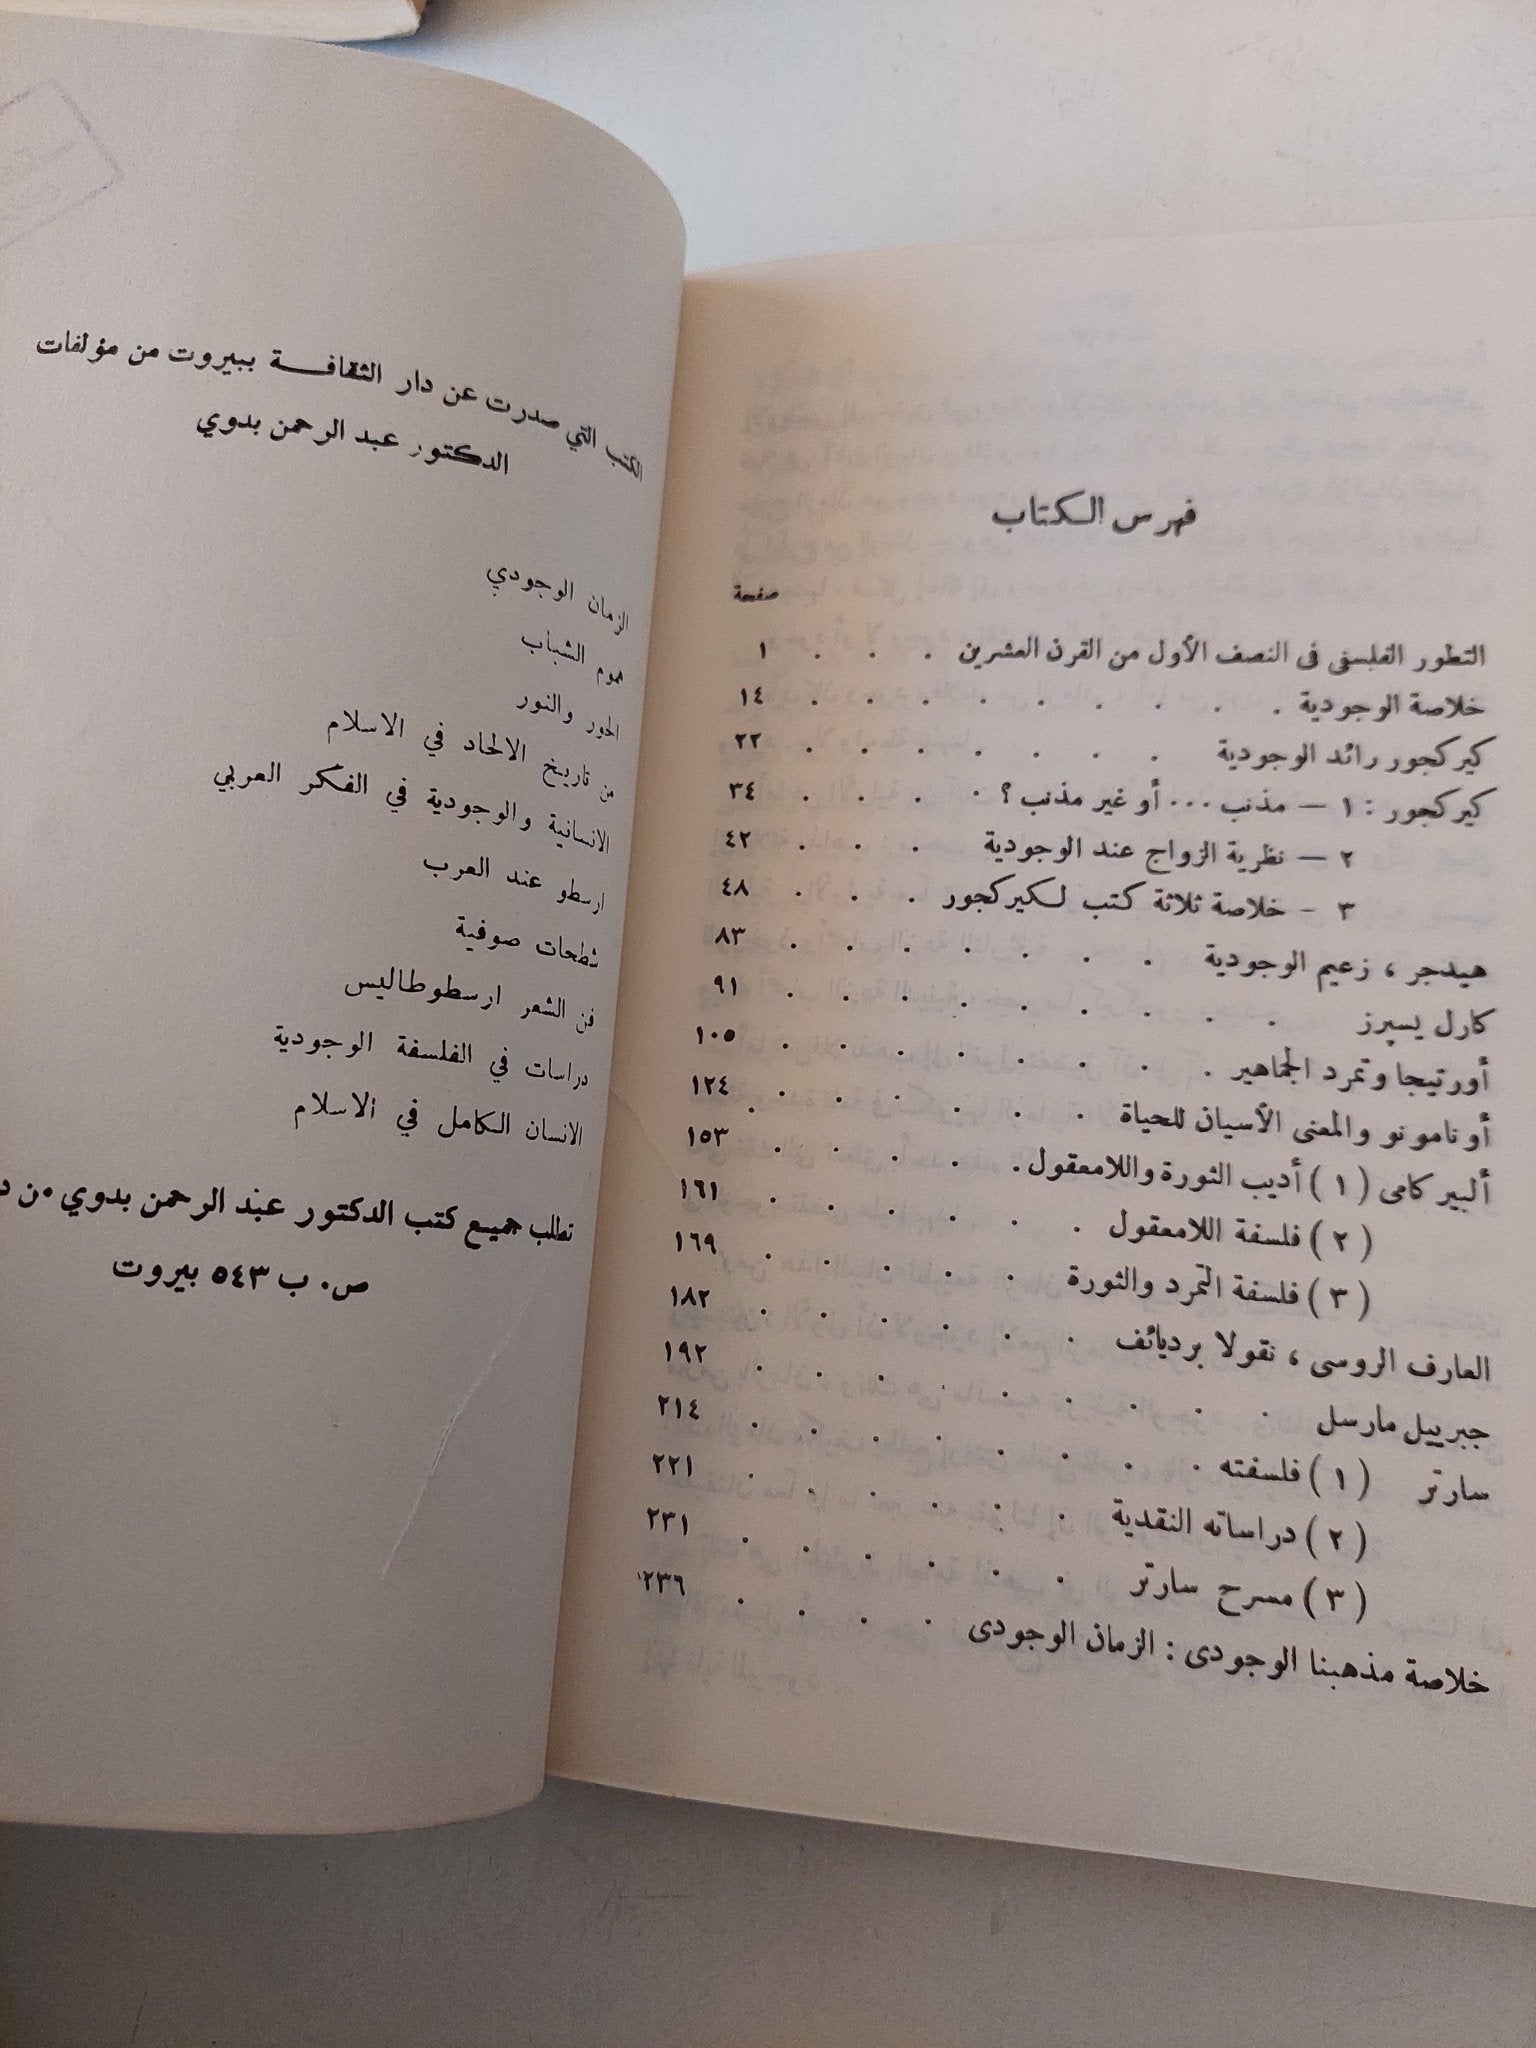 فهرس الكتاب
صفحة
التطور الفلسفى فى النصف الأول من القرن العشرين . . . ١
خلاصة الوجودية . . . . . . . . . ١٤
كيركجور رائد الوجودية . . . . . . . ٢٢
كيركجور : ١ — مذنب ... أو غير مذنب ؟ . . . . ٣٤
٢ — نظرية الزواج عند الوجودية . . . ٤٢
٣ - خلاصة ثلاثة كتب لكيركجور . . . ٤٨
هيدجر ، زعيم الوجودية . . . . . . . ٨٣
كارل يسپرز . . . . . . . . . ٩١
أورتيجا وتمرد الجماهير . . . . . . . . ١٠٥
أونامونو والمعنى الأسيان للحياة . . . . . . ١٢٤
ألبير كامى ( ١ ) أديب الثورة واللامعقول . . . . . ١٥٣
( ٢ ) فلسفة اللامعقول . . . . . . ١٦١
( ٣ ) فلسفة التمرد والثورة . . . . . ١٦٩
العارف الروسى ، نقولا برديائف . . . . . . ١٨٢
جبرييل مارسل . . . . . . . . . ١٩٢
سارتر ( ١ ) فلسفته . . . . . . . . ٢١٤
( ٢ ) دراساته النقدية . . . . . . ٢٢١
( ٣ ) مسرح سارتر . . . . . . ٢٣١
خلاصة مذهبنا الوجودى : الزمان الوجودى . . . . ٢٣٦
الكتب التي صدرت عن دار الثقافة ببيروت من مؤلفات
الدكتور عبد الرحمن بدوي
الزمان الوجودي
هموم الشباب
الحور والنور
من تاريخ الالحاد في الاسلام
الانسانية والوجودية في الفكر العربي
ارسطو عند العرب
شطحات صوفية
فن الشعر ارسطوطاليس
دراسات في الفلسفة الوجودية
الانسان الكامل في الاسلام
تطلب جميع كتب الدكتور عبد الرحمن بدوي من
ص. ب ٥٤٣ بيروت